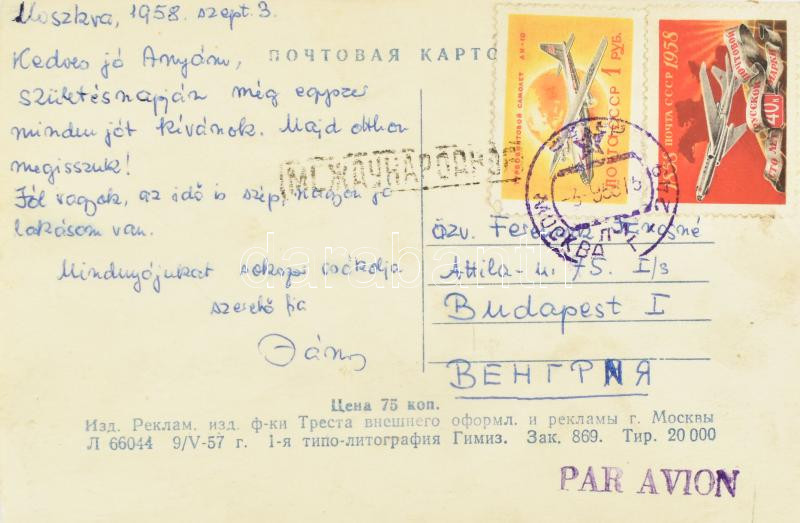 Moszkva, 1958. szept. 3.
Kedves jó Anyám,
születésnapján még egyszer
minden jót kívánok. Majd otthon
megisszuk!
Jól vagyok, az idő is szép, nagyon jó
lakásom van.
Mindnyájukat sokszor csókolja
szerető fia
János
ПОЧТОВАЯ КАРТО
МЕЖДУНАРОДНОЕ
АЭРОФОТОВОЙ САМОЛЕТ АН-10
ПОЧТА СССР 1 РУБ.
ПОЧТА СССР 1958
СТО ЛЕТ РУССКОЙ ПОЧТОВОЙ МАРКИ
40 к
МОСКВА
özv. Ferenczik Jánosné
Attila-u. 75. I/3
Budapest I
ВЕНГРИЯ
darabanth
Цена 75 коп.
Изд. Реклам. изд. ф-ки Треста внешнего оформл. и рекламы г. Москвы
Л 66044 9/V-57 г. 1-я типо-литография Гимиз. Зак. 869. Тир. 20 000
PAR AVION